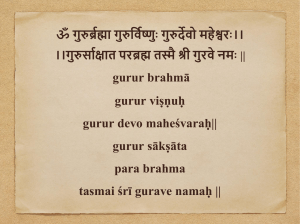 ॐ गुरुर्ब्रह्मा गुरुर्विष्णुः गुरुर्देवो महेश्वरः।।
।।गुरुर्साक्षात परब्रह्म तस्मै श्री गुरवे नमः ||
gurur brahmā
gurur viṣṇuḥ
gurur devo maheśvaraḥ||
gurur sākṣāta
para brahma
tasmai śrī gurave namaḥ ||